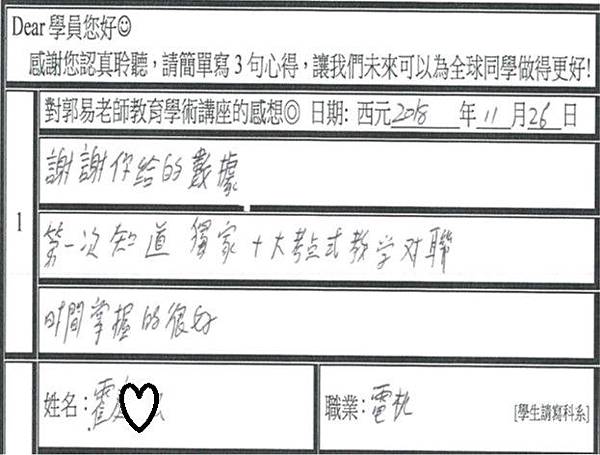 Dear 學員您好☺
感謝您認真聆聽，請簡單寫3句心得，讓我們未來可以為全球同學做得更好!
對郭易老師教育學術講座的感想◎ 日期: 西元 2018 年 11 月 26 日
1
謝謝你给的數據
第一次知道 獨家 十大考点式教学对聯
时間掌握的很好
姓名: 霍
職業: 電机 [學生請寫科系]